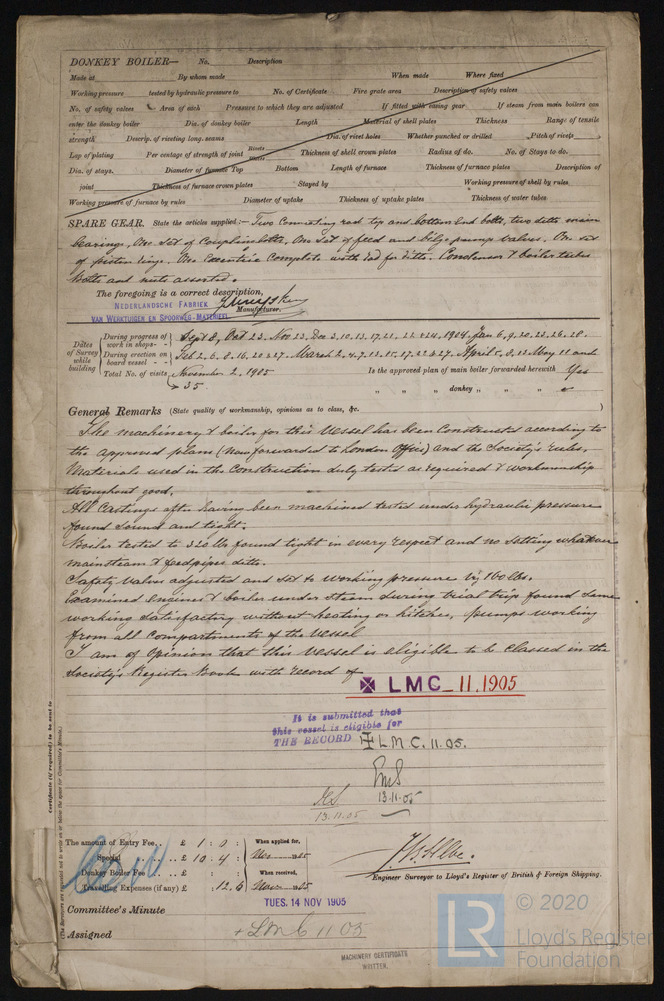 DONKEY BOILER— No. Description
Made at By whom made When made Where fixed
Working pressure tested by hydraulic pressure to No. of Certificate Fire grate area Description of safety valves
No. of safety valves Area of each Pressure to which they are adjusted If fitted with easing gear If steam from main boilers can
enter the donkey boiler Dia. of donkey boiler Length Material of shell plates Thickness Range of tensile
strength Descrip. of riveting long. seams Dia. of rivet holes Whether punched or drilled Pitch of rivets
Lap of plating Per centage of strength of joint Rivets Thickness of shell crown plates Radius of do. No. of Stays to do.
Dia. of stays. Diameter of furnace Top Bottom Length of furnace Thickness of furnace plates Description of
joint Thickness of furnace crown plates Stayed by Working pressure of shell by rules
Working pressure of furnace by rules Diameter of uptake Thickness of uptake plates Thickness of water tubes
SPARE GEAR. State the articles supplied:— Two Connecting rod top and bottom End bolts, two ditto main
bearings, One Set of Coupling bolts, One Set of feed and bilge pump valves, One set
of piston rings, One Eccentric Complete with rod for ditto. Condenser & boiler tubes
Bolts and nuts assorted.
The foregoing is a correct description,
NEDERLANDSCHE FABRIEK
Manufacturer.
VAN WERKTUIGEN EN SPOORWEG-MATERIEEL
Dates of Survey while building
During progress of work in shops - - Sept 8, Oct 23, Nov 23, Dec 3, 10, 13, 17, 21, 22 & 24, 1904. Jan 6, 9, 20, 23, 26, 28.
During erection on board vessel - - Feb 2, 6, 8, 16, 20 & 27. March 2, 4, 7, 13, 15, 17, 22 & 27. April 5, 8, 13. May 11 and
Total No. of visits November 2, 1905 Is the approved plan of main boiler forwarded herewith Yes
35 „ „ „ donkey „ „ „
General Remarks (State quality of workmanship, opinions as to class, &c. )
The machinery & boiler for this Vessel has been Constructed according to
the approved plans (now forwarded to London Office) and the Society's rules,
Materials used in the Construction duly tested as required & workmanship
throughout good.
All Castings after having been machined tested under hydraulic pressure
found sound and tight.
Boiler tested to 320 lbs found tight in every respect and no setting whatever
mainsteam & feedpipes ditto.
Safety valves adjusted and set to working pressure viz 160 lbs.
Examined engines & boiler under steam during trial trip found same
working satisfactory without heating or hitches, pumps working
from all compartments of the Vessel
I am of Opinion that this Vessel is eligible to be Classed in the
Society's Register Book with record of
✠ LMC _ 11.1905
It is submitted that
this vessel is eligible for
THE RECORD ✠ LMC. 11.05.
13.11.05
13.11.05
Certificate (if required) to be sent to
The amount of Entry Fee.. £ 1 : 0 : When applied for,
Special .. .. £ 10 : 4 : Nov 1905
Donkey Boiler Fee .. .. £ : : When received,
Travelling Expenses (if any) £ : 12.6 Nov 1905
Engineer Surveyor to Lloyd's Register of British & Foreign Shipping.
Committee's Minute TUES. 14 NOV 1905
Assigned + LMC 11 05
MACHINERY CERTIFICATE
WRITTEN.
LR
© 2020
Lloyd's Register
Foundation